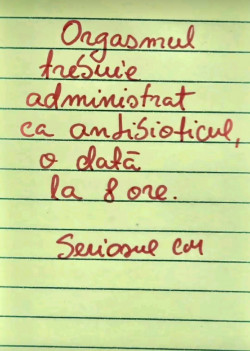 Orgasmul
trebuie
administrat
ca antibioticul,
o dată
la 8 ore.